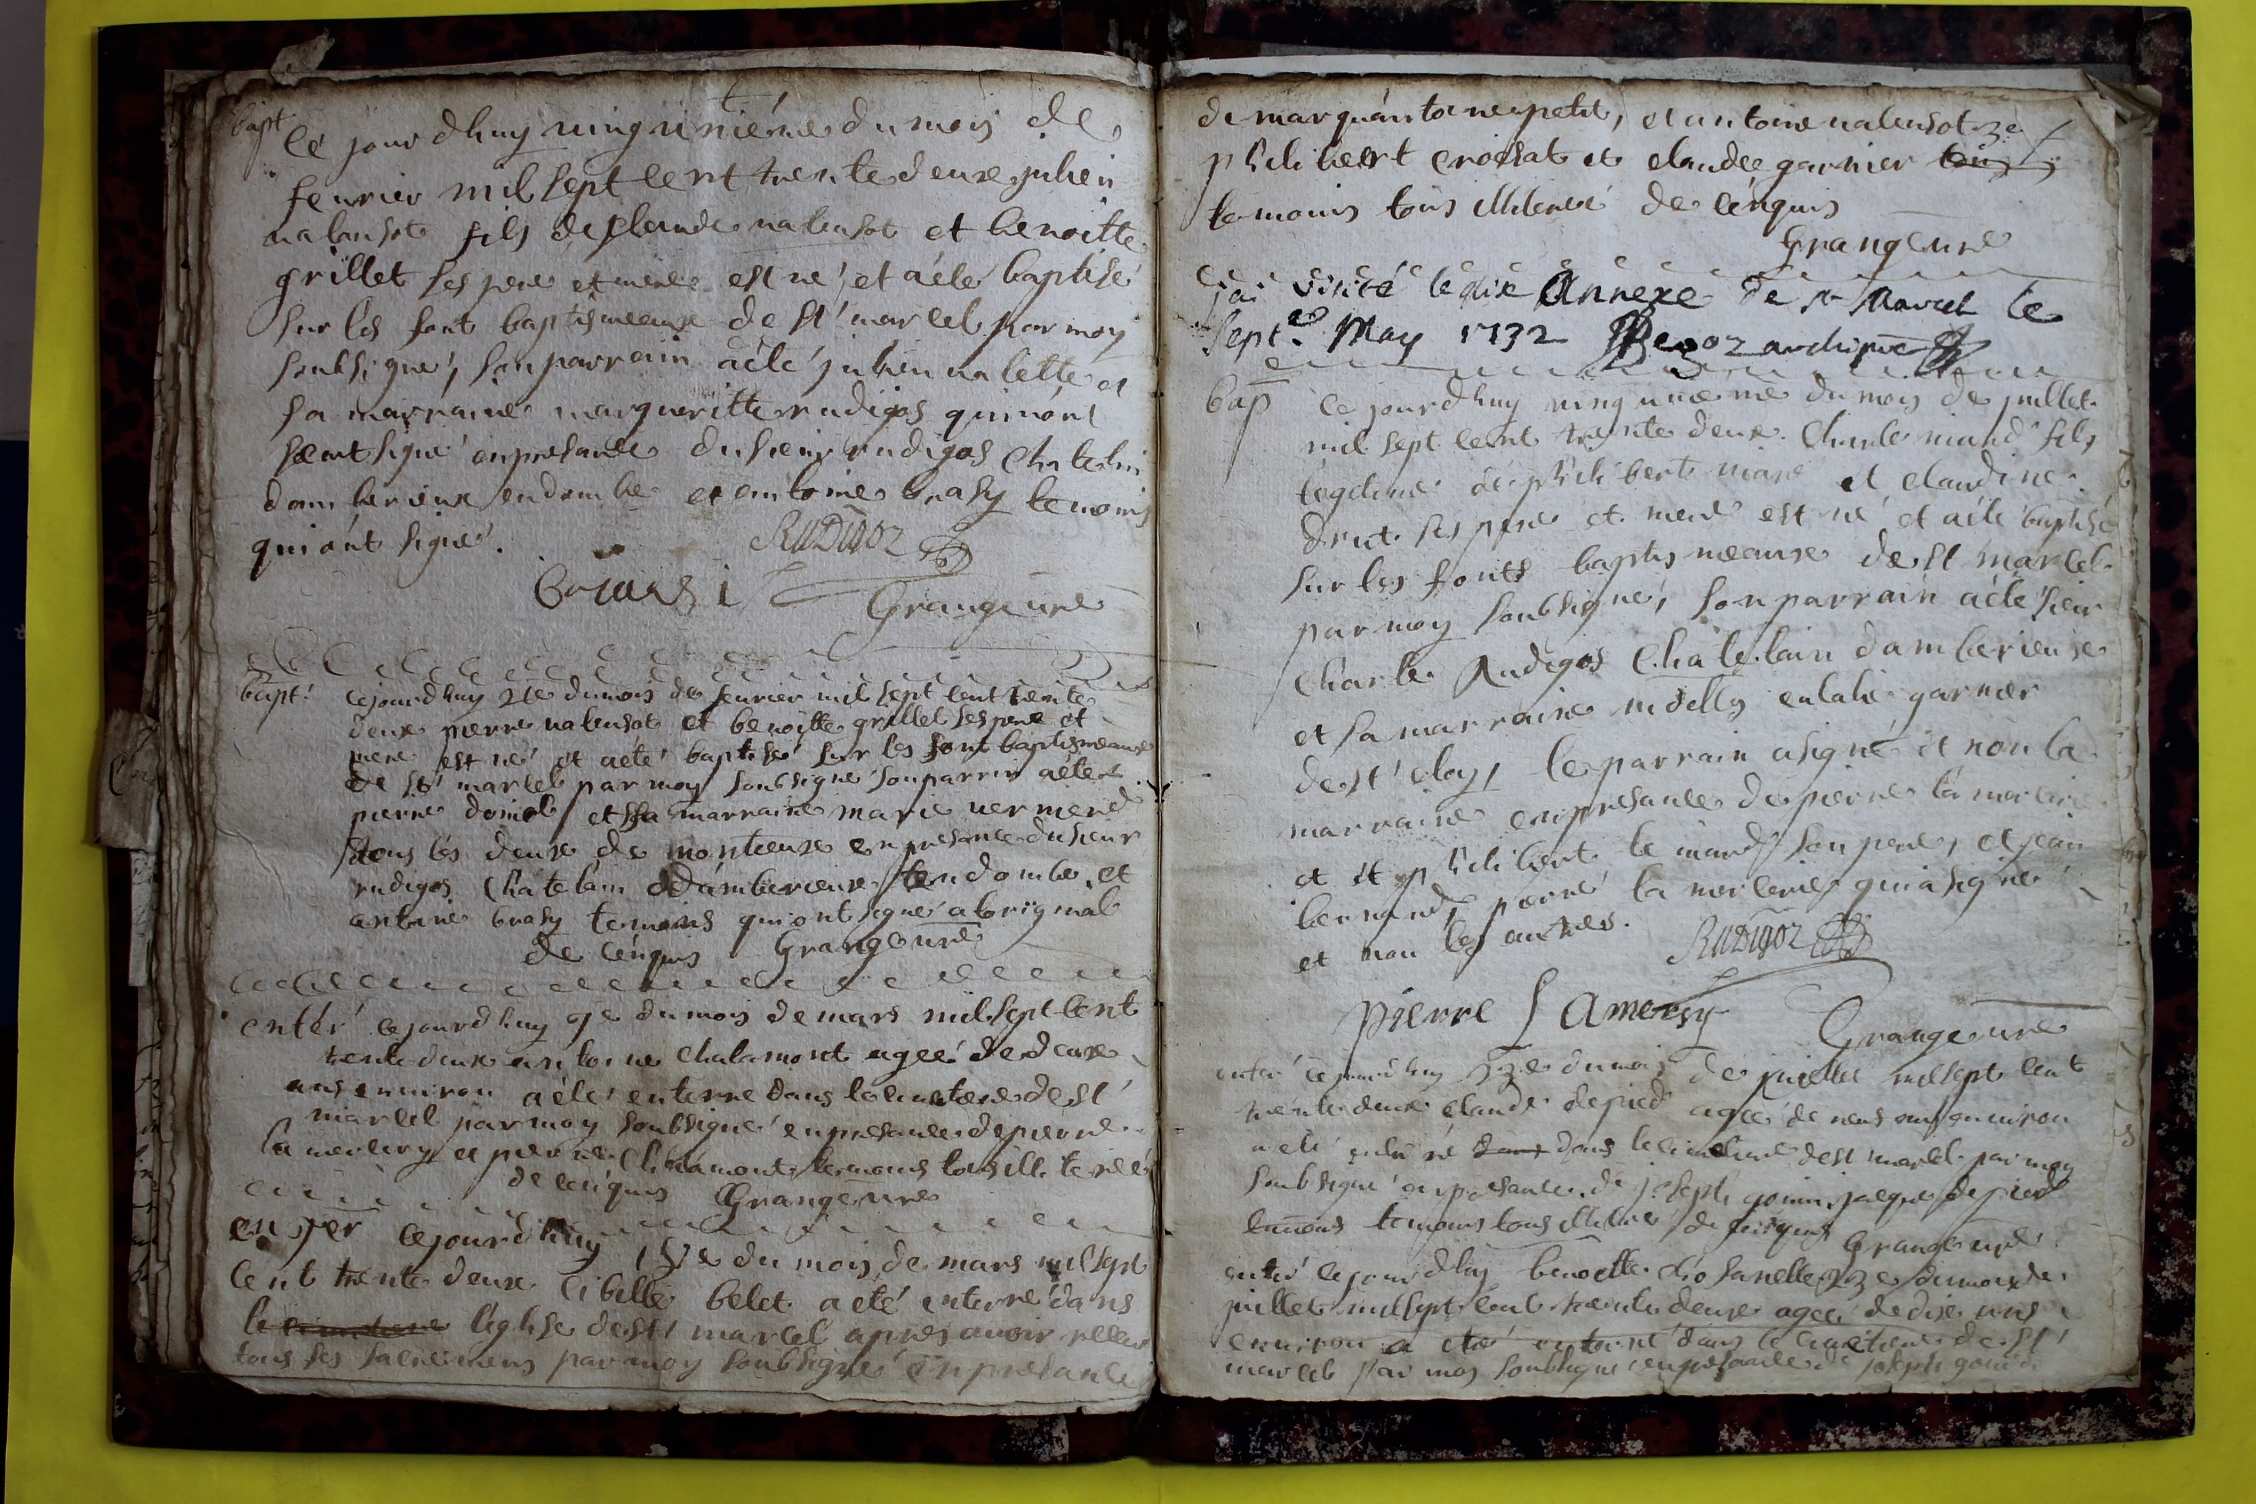 bapt
Ce jourdhuy vingunième du mois de
feurier mil sept cent trente deux julien
nalensot fils de claude nalensot et benoitte
grillet ses pere et mere est né et aété baptisé
sur les font baptismeaux de St marcel par moy
soubsigné, son parrain aété julien nalette et
sa marraine margueritte rudigos qui nónt
signé en presance du sieur rudigos Chatelin
damberieux en dombe et antoine brasy temoins
qui ónt signé.
RUDigoz
Grange curé
bapt. Cejourdhuy 21e du mois de feurier mil sept cent trente
deux pierre nalensot et benoitte grillet ses pere et
mere est né et aété baptisé sur les font baptismeaux
de St marcel par moy soubsigné son parrin aété
pierre doniol et sa marraine marie uermiend
tous les deux de montieux en presance du sieur
rudigos Chatelain damberieux en dombe et
antoine brasy temoins qui ont signé a loriginal
de cenquis Grange curé
entéré cejourdhuy 9e du mois de mars mil sept cent
trente deux antoine Chalamont ageé de deux
ans enuiron aété enterré dans le cimetiere de St
marcel par moy soubsigné en presance de pierre
la mercery et pierre Chalamont temoins tous illiteréé
de cenquis Grange curé
enter cejourdhuy 15e du mois de mars mil sept
cent trente deux libelle belet a eté enterré dans
le cimetiere léglise de St marcel apres auoir receu
tous ses sacremens par moy soubsigné en presance
de marquántoine petit, et antoine nalensot
philibert croisat et claude garnier tous
temoins tous illiteréé de cénquis
Grange curé
jai visité le dix Annexe de st Marcel le
sept.e May 1732 archiprê
bap Ce jourdhuy vingunième du mois de juillet
mil sept cent trente deux. Charle niand fils
legitime de philibert niand et claudine
drut ses pere et mere est né et aété baptisé
sur les fonts baptismeaux de St marcel
par moy soubsigné, son parrain aété sieur
Charle Rudigos Chatelain damberieux
et sa marraine mdelle eulalie garnier
de St eloy, le parrain a signé et non la
marraine en presance de pierre la mercerie
et philibert le niand son pere, et jean
bernand, pierre la mercerie qui a signé
et non les autres.
RUDigoz
pierre Lamercy Grange curé
entéré cejourdhuy 22e du mois de juillet mil sept cent
trente deux claude depied ageé de neuf ans enuiron
a eté enterré dans dans le cimetiere de St marcel par moy
soubsigné en presance de joseph gonin, jacque depied
temoins tous illiteré de cenquis Grange curé
entéré cejourdhuy benoitte chosanelle 23e du mois de
juillet mil sept cent trente deux ageé de dix ans
enuiron a eté enterré dans le cimetiere de St
marcel par moy soubsigné en presance de joseph gonin